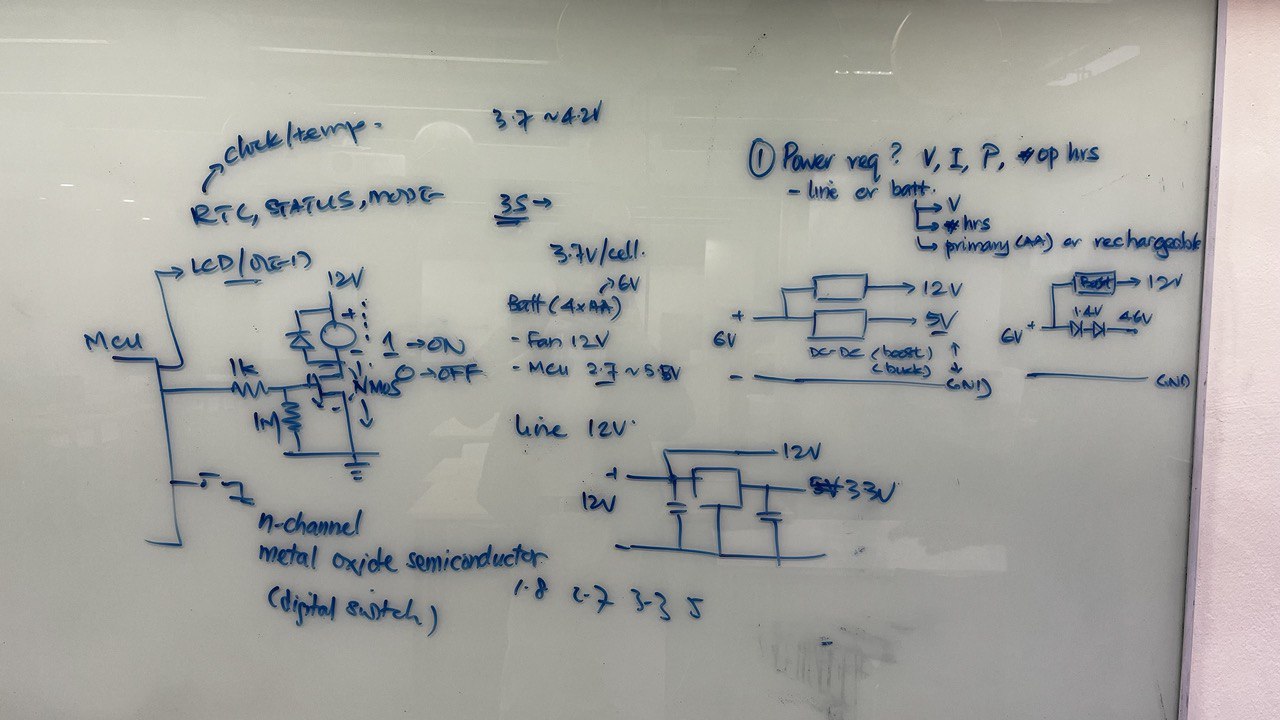 clock/temp.
RTC, STATUS, MODE
LCD/OLED
12V
+
-
MCU
1k
1M
NMOS
1 → ON
0 → OFF
n-channel
metal oxide semiconductor
(digital switch)
3.7 ~ 4.2V
3S →
3.7V/cell.
→ 6V
Batt (4xAA)
- Fan 12V
- MCU 2.7 ~ 5.5V
Line 12V
+
12V
12V
3.3V
1.8 2.7 3.3 5
① Power req? V, I, P, # op hrs
- line or batt.
→ V
→ # hrs
→ primary (AA) or rechargeable
+
6V
-
12V
5V
DC-DC (boost)
(buck)
GND
Boost → 12V
1.4V
4.6V
6V +
GND